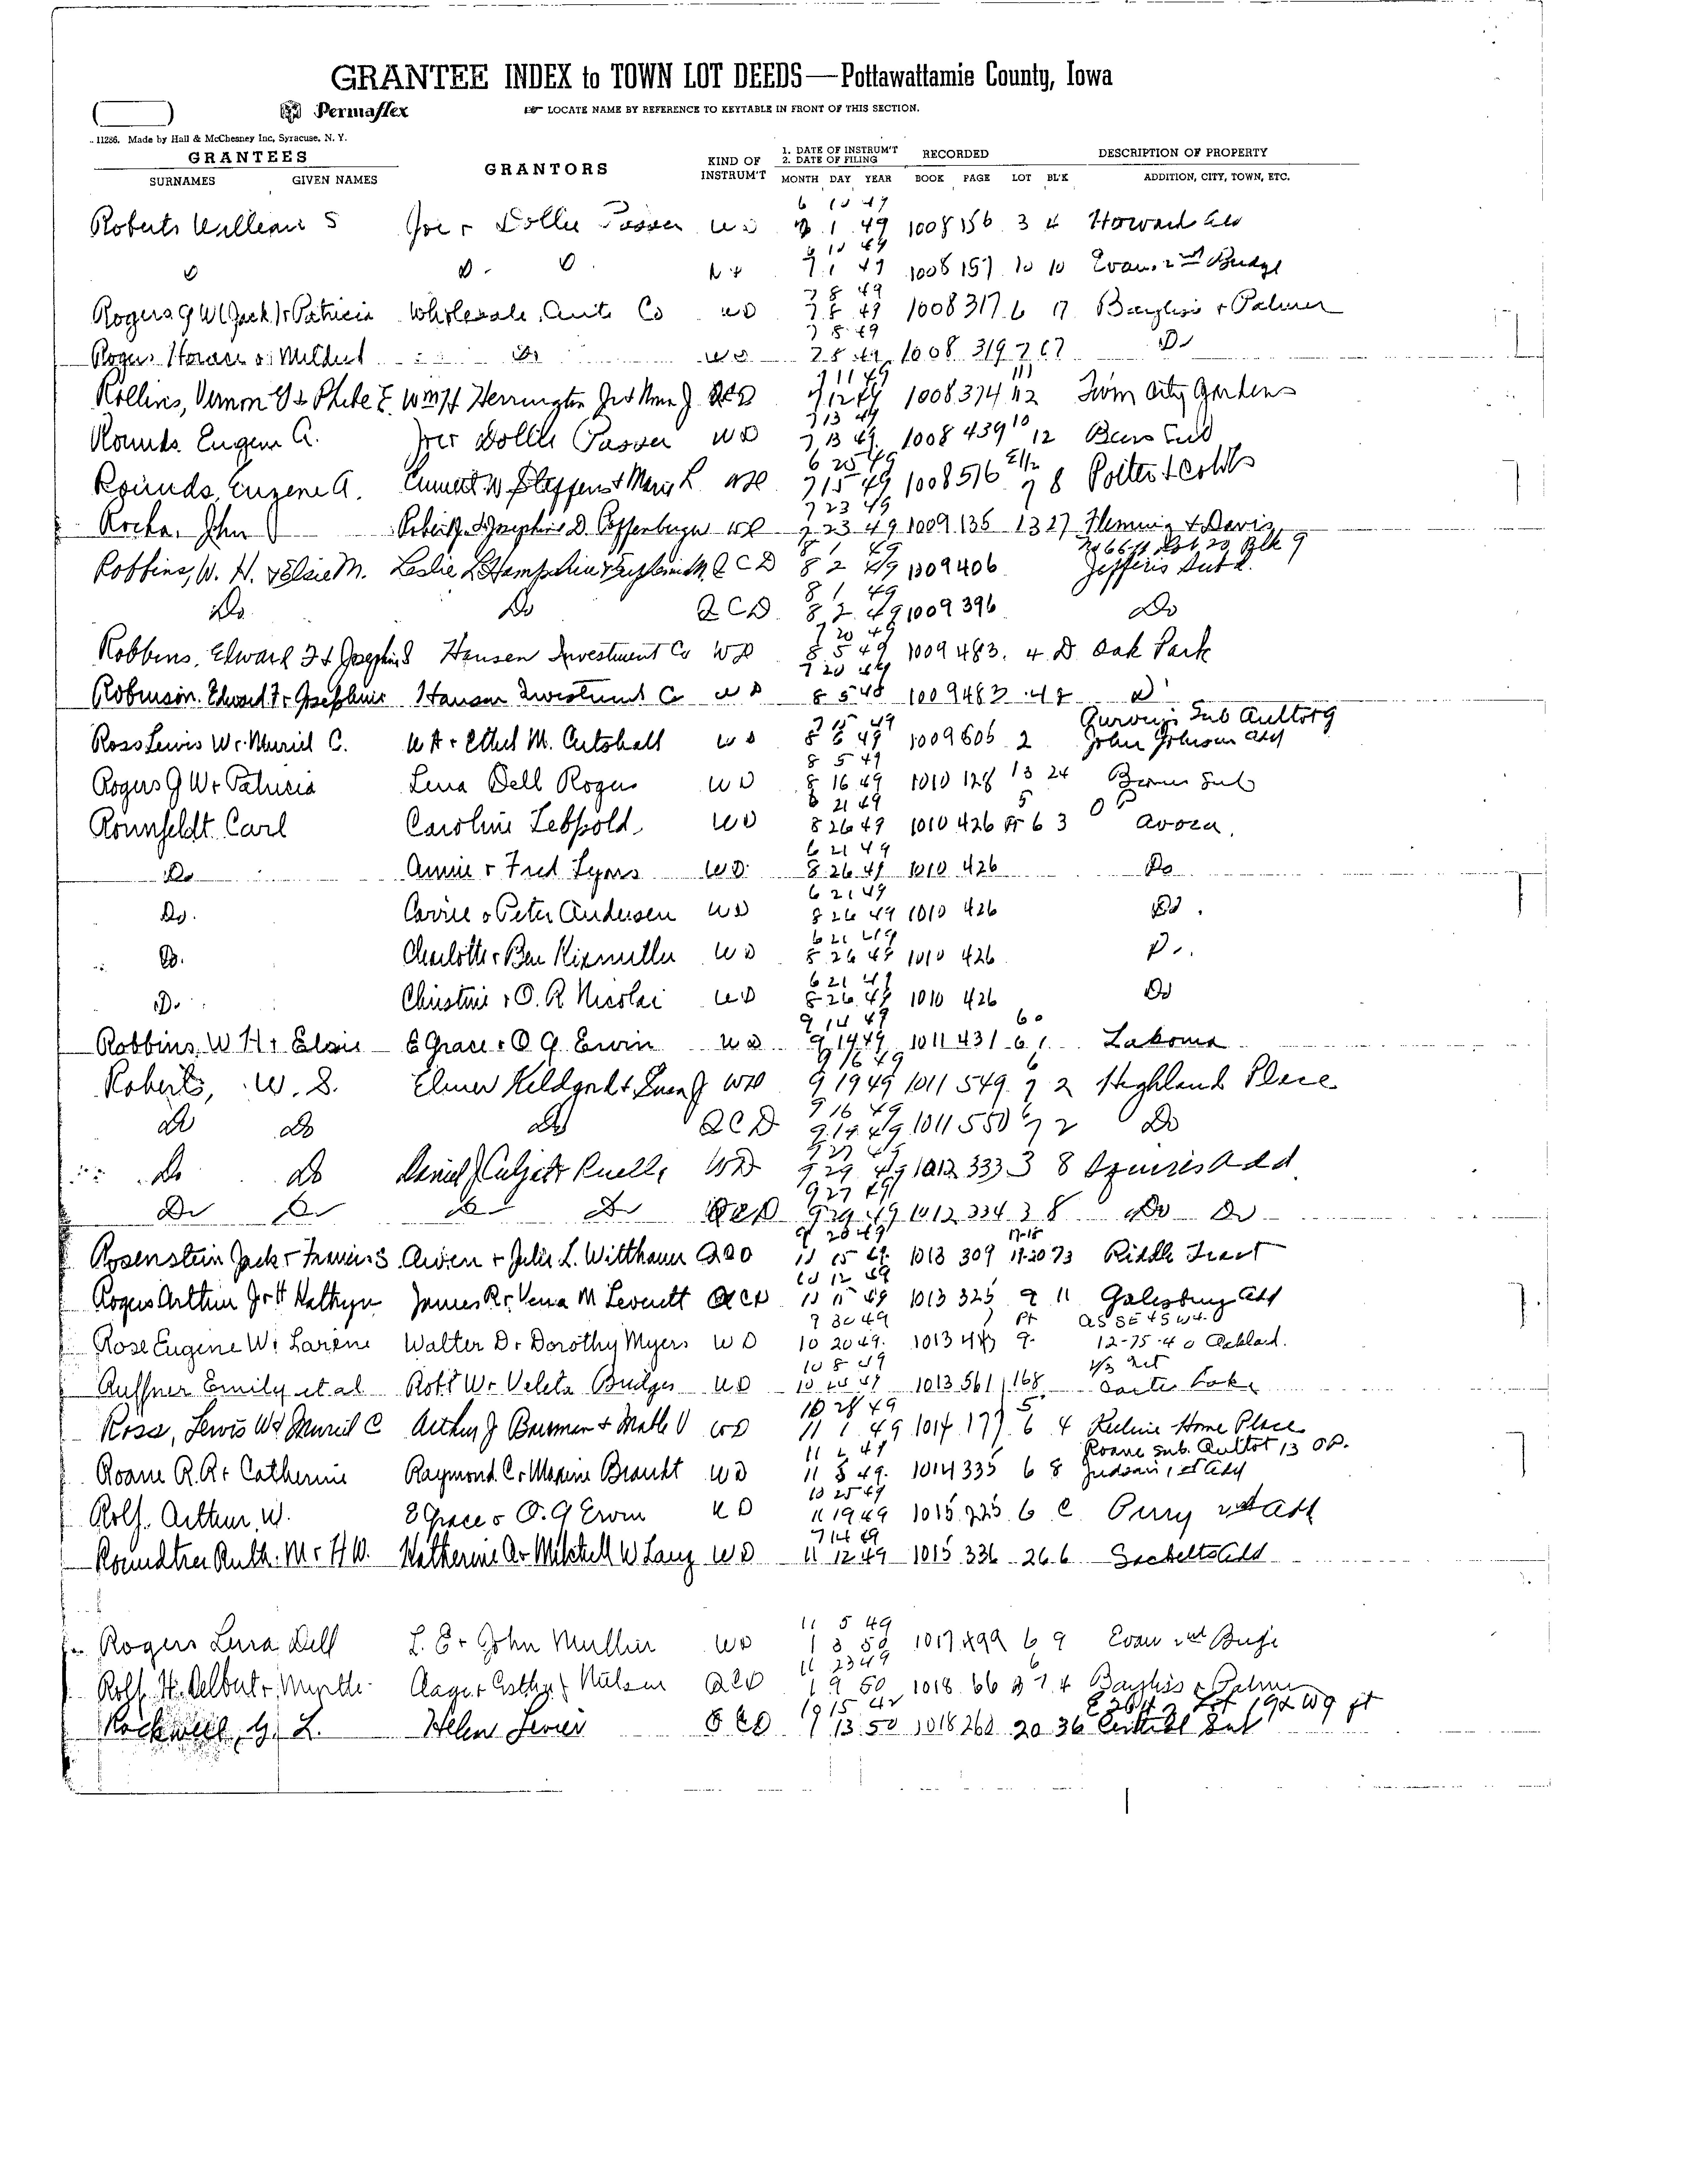 GRANTEE INDEX to TOWN LOT DEEDS—Pottawattamie County, Iowa
Permaflex ☞ LOCATE NAME BY REFERENCE TO KEYTABLE IN FRONT OF THIS SECTION.
11286. Made by Hall & McChesney Inc, Syracuse, N. Y.
GRANTEES GRANTORS KIND OF INSTRUM'T 1. DATE OF INSTRUM'T 2. DATE OF FILING RECORDED DESCRIPTION OF PROPERTY
SURNAMES GIVEN NAMES MONTH DAY YEAR BOOK PAGE LOT BL'K ADDITION, CITY, TOWN, ETC.
Roberts William S Joe + Dollie Passer WD 1 49 1008 156 3 4 Howard
7 1 49 1008 157 10 10 Evans 2nd Bridge
7 8 49
Rogers G W (Jack) + Patricia Wholesale Auto Co WD 7 8 49 1008 317 6 17 Bayliss + Palmer
7 8 49
Rogers Horace + Mildred Do WD 7 8 49 1008 319 7 17 Do
7 11 49
Rollins, Vernon + Phebe E. Wm H Herrington Jr + Nona J. QCD 7 12 49 1008 374 112 Twin City Gardens
7 13 49 10
Rounds Eugene A. Joe + Dollie Passer WD 7 13 49 1008 439 12 Beers Sub
6 25 49 E 1/2
Rounds, Eugene A. Emmett W Steffens + Marie L. WD 7 15 49 1008 516 7 8 Potter + Cobbs
7 23 49
Rocha, John Robert + Josephine D. Poffenberger WD 7 23 49 1009 135 13 27 Fleming + Davis
8 1 49 N 66 ft Lot 20 Blk 9
Robbins, W. H. + Elsie M. Leslie QCD 8 2 49 1009 406 Jefferis Sub
8 1 49
Do Do QCD 8 2 49 1009 396 Do
7 20 49
Robbins, Edward F + Josephine Hansen Investment Co WD 8 5 49 1009 483 4 D Oak Park
7 20 49
Robinson Edward F + Josephine Hansen Investment Co WD 8 5 49 1009 483 4
Ross Lewis W + Muriel C. W A + Ethel M. Cutshall WD 49 1009 606 2 John Johnson Add
8 5 49
Rogers G W + Patricia Lura Dell Rogers WD 8 16 49 1010 128 13 24 Sub
6 21 49 5 OP
Ronnfeldt Carl Caroline Leopold WD 8 26 49 1010 426 Pt 6 3 Avoca
6 21 49
Do Annie + Fred Lyons WD 8 26 49 1010 426 Do
6 21 49
Do. Carrie + Peter Andersen WD 8 26 49 1010 426 Do.
6 21 49
Do. Charlotte + Ben Kixmiller WD 8 26 49 1010 426 Do.
6 21 49
Do. Christine + O. R Nicolai WD 8 26 49 1010 426 Do
9 14 49 60
Robbins W H + Elsie E Grace + O G. Erwin WD 9 14 49 1011 431 61 Lakoma
9 16 49 6
Roberts, W. S. Elmer Keldgord + WD 9 19 49 1011 549 7 2 Highland Place
9 16 49 6
Do Do Do QCD 9 19 49 1011 550 7 2 Do
9 27 49
Do Do Daniel J + Ruelle WD 9 29 49 1012 333 3 8 Squires Add
9 27 49
Do Do Do Do QCD 9 29 49 1012 334 3 8 Do Do
9 28 49 17-18
Rosenstein Jack + Frances S. + Julie L. Witthauer QCD 15 49 1013 309 19-20 73 Riddle Tract
10 12 49
Rogers Arthur Jr + Kathryn James R + Verna M Leverett QCD 49 1013 325 9 11 Galesburg Add
9 30 49 Pt
Rose Eugene W + Larene Walter D + Dorothy Myers WD 10 20 49 1013 9 12-75-40 Oakland
10 8 49 1/3 Int
Ruffner Emily et al Robt W + Veleta Bridges WD 10 49 1013 561 168 Carter Lake
10 28 49 5
Ross, Lewis W + Muriel C Arthur J + Mable V WD 11 1 49 1014 177 6 4 Kecline Home Place
11 49 Roane Sub. Outlot 13 OP.
Roane R. R + Catherine Raymond C + Maxine Brandt WD 11 49 1014 335 6 8 Judson 1st Add
10 25 49
Rolf. Arthur W. E Grace + O. G Erwin WD 11 9 49 1015 225 6 C Perry 2nd Add
7 14 49
Roundtree Ruth. M + H W. Katherine A + Mitchell W Lang WD 11 12 49 1015 336 26 6 Sacketts Add
11 5 49
Rogers Lura Dell L. E + John Mullin WD 1 3 50 1017 499 6 9 Evans 2nd Bridge
11 23 49 6
Rolf H. Delbert + Myrtle Aage + Esther Nielsen QCD 1 9 50 1018 66 7 4 Bayliss + Palmer
19 15 42
Rockwell, G. L. Helen QCD 1 13 50 1018 260 20 36 Central Sub